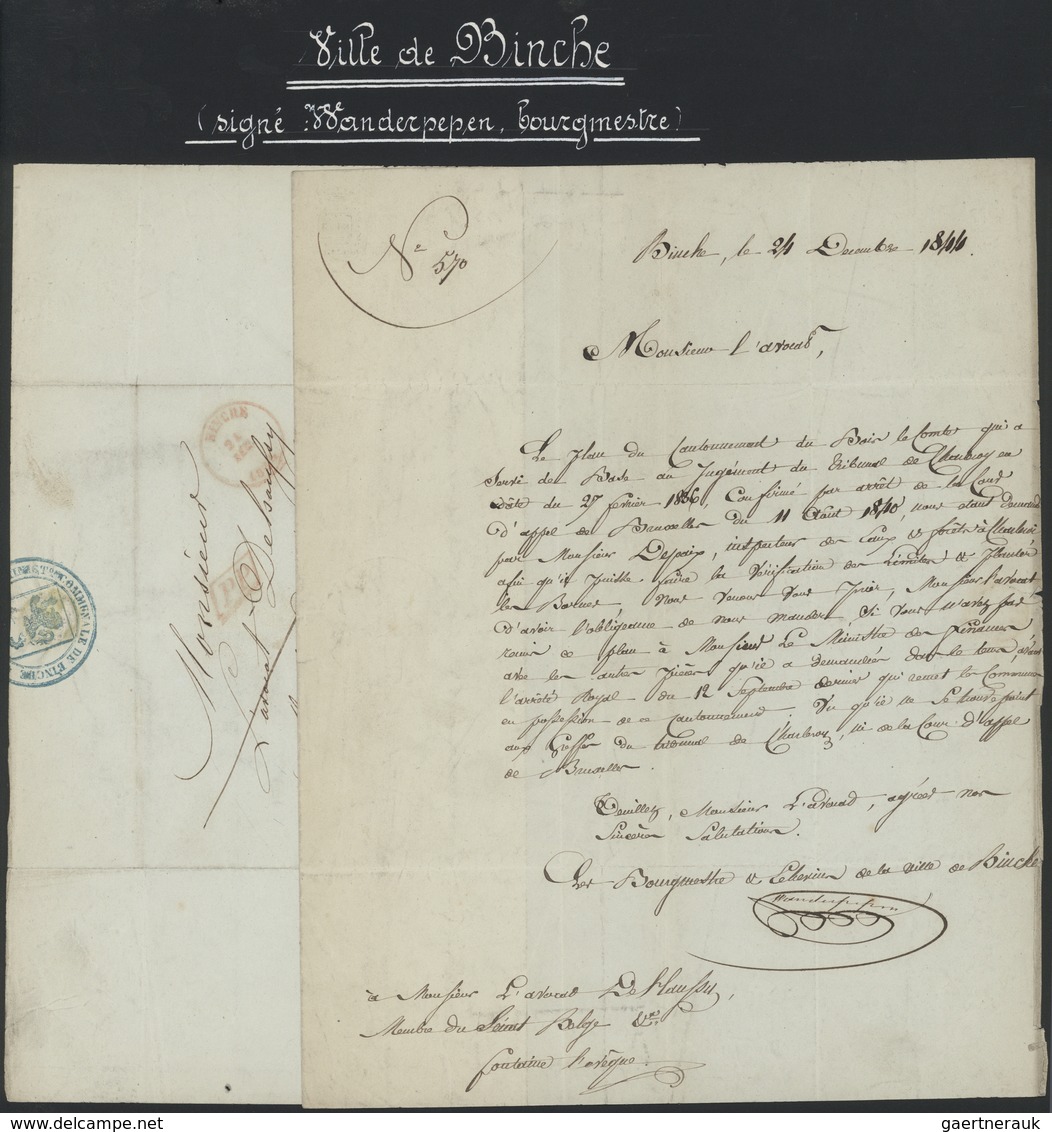 Ville de Binche
(signé : Wanderpepen, bourgmestre)
N° 570
Binche, le 24 Decembre 1844.
Monsieur l'avocat,
Le Plan du Cantonnement du Bois le Comte qui a
Servi de Base au Jugement du Tribunal de Charleroy en
date du 27 fevrier 1836, Confirmé par arrêt de la Cour
d'appel de Bruxelles du 11 Août 1840, nous etant demandé
par Monsieur Despaix, inspecteur des Eaux & forêts à Charleroi
afin qu'il puisse faire la Vérification des Limites & Planter
les Bornes, Nous Venons Vous Prier, Monsieur l'avocat
d'avoir l'obligeance de nous mander, Si Vous n'avez pas
remis ce plan à Monsieur Le Ministre des finances
avec les autres pièces qu'il a demandées dans le tems, avant
l'arrêté Royal du 12 Septembre dernier qui remet la Commune
en possession de ce Cantonnement. Vu qu'il ne se trouve point
aux Greffes du tribunal de Charleroy, ni de la Cour d'Appel
de Bruxelles.
Veuillez, Monsieur L'avocat, agréer nos
Sincères Salutations.
Les Bourgmestre & Echevins de la Ville de Binche
Wanderpepen
à Monsieur L'avocat
Membre du Sénat Belge
fontaine Leveque
Monsieur
L'avocat
BINCHE
24
COMMUNALE DE BINCHE
gaertnerauk @ delcampe.net